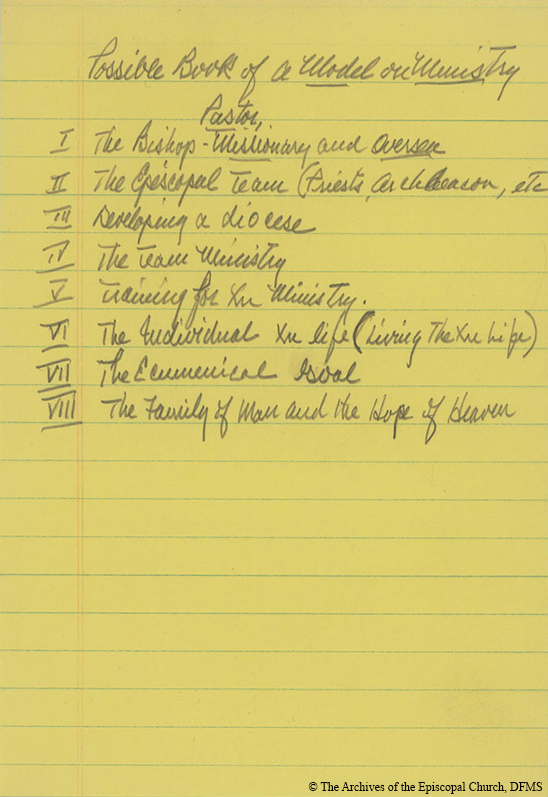 Possible Book of a Model on Ministry
Pastor,
I The Bishop - Missionary and Oversee
II The Episcopal Team (Priests, Archdeacon, etc
III Developing a diocese
IV The Team Ministry
V Training for Xn Ministry.
VI The Individual Xn life (Living The Xn Life)
VII The Ecumenical Goal
VIII The Family of Man and the Hope of Heaven
© The Archives of the Episcopal Church, DFMS